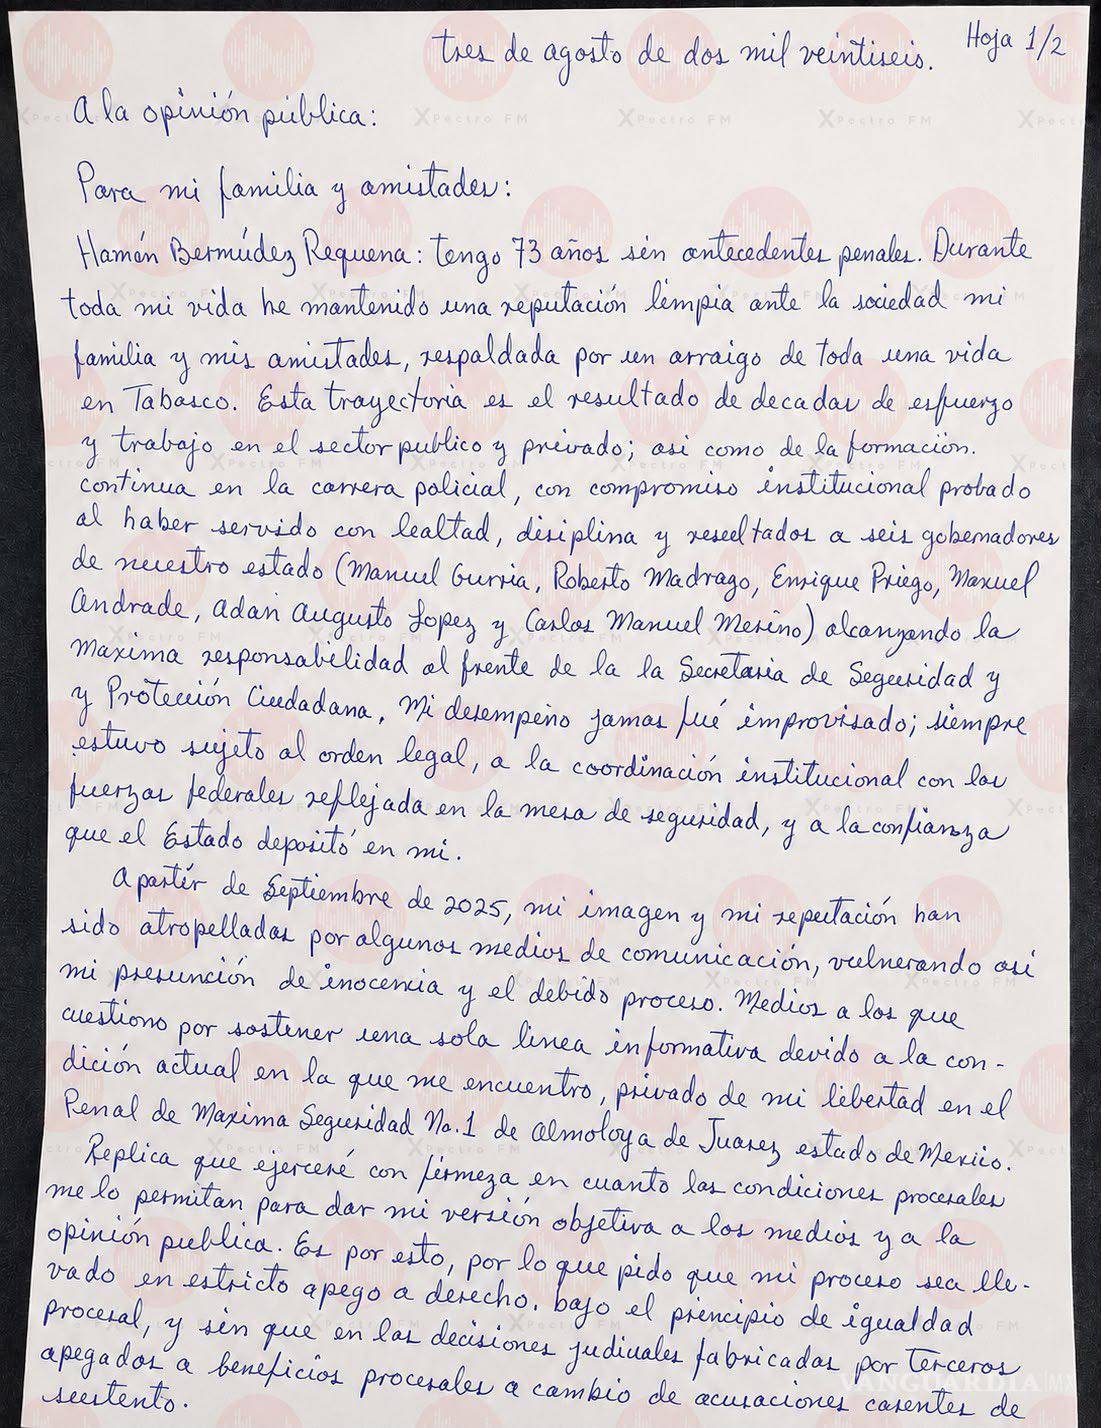 Hoja 1/2
tres de agosto de dos mil veintiseis.
A la opinión pública:
Para mi familia y amistades:
Hernán Bermúdez Requena: tengo 73 años sin antecedentes penales. Durante
toda mi vida he mantenido una reputación limpia ante la sociedad mi
familia y mis amistades, respaldada por un arraigo de toda una vida
en Tabasco. Esta trayectoria es el resultado de decadas de esfuerzo
y trabajo en el sector publico y privado; asi como de la formación.
continua en la carrera policial, con compromiso institucional probado
al haber servido con lealtad, disiplina y resultados a seis gobernadores
de nuestro estado (Manuel Gurria, Roberto Madrazo, Enrique Priego, Manuel
Andrade, Adan Augusto Lopez y Carlos Manuel Merino) alcanzando la
Maxima responsabilidad al frente de la la Secretaria de Seguridad y
y Protección Ciudadana. Mi desempeño jamas fué improvisado; siempre
estuvo sujeto al orden legal, a la coordinación institucional con las
fuerzas federales reflejada en la mesa de seguridad, y a la confianza
que el Estado depositó en mi.
A partir de Septiembre de 2025, mi imagen y mi reputación han
sido atropelladas por algunos medios de comunicación, vulnerando asi
mi presunción de inocencia y el debido proceso. Medios a los que
cuestiono por sostener una sola linea informativa devido a la con-
dición actual en la que me encuentro, privado de mi libertad en el
Penal de Maxima Seguridad No.1 de Almoloya de Juarez estado de Mexico.
Replica que ejerceré con firmeza en cuanto las condiciones procesales
me lo permitan para dar mi versión objetiva a los medios y a la
opinión publica. Es por esto, por lo que pido que mi proceso sea lle-
vado en estricto apego a derecho. bajo el principio de igualdad
procesal, y sin que en las decisiones judiciales fabricadas por terceros
apegados a beneficios procesales a cambio de acusaciones carentes de
sustento.
XPectro FM
VANGUARDIA MX